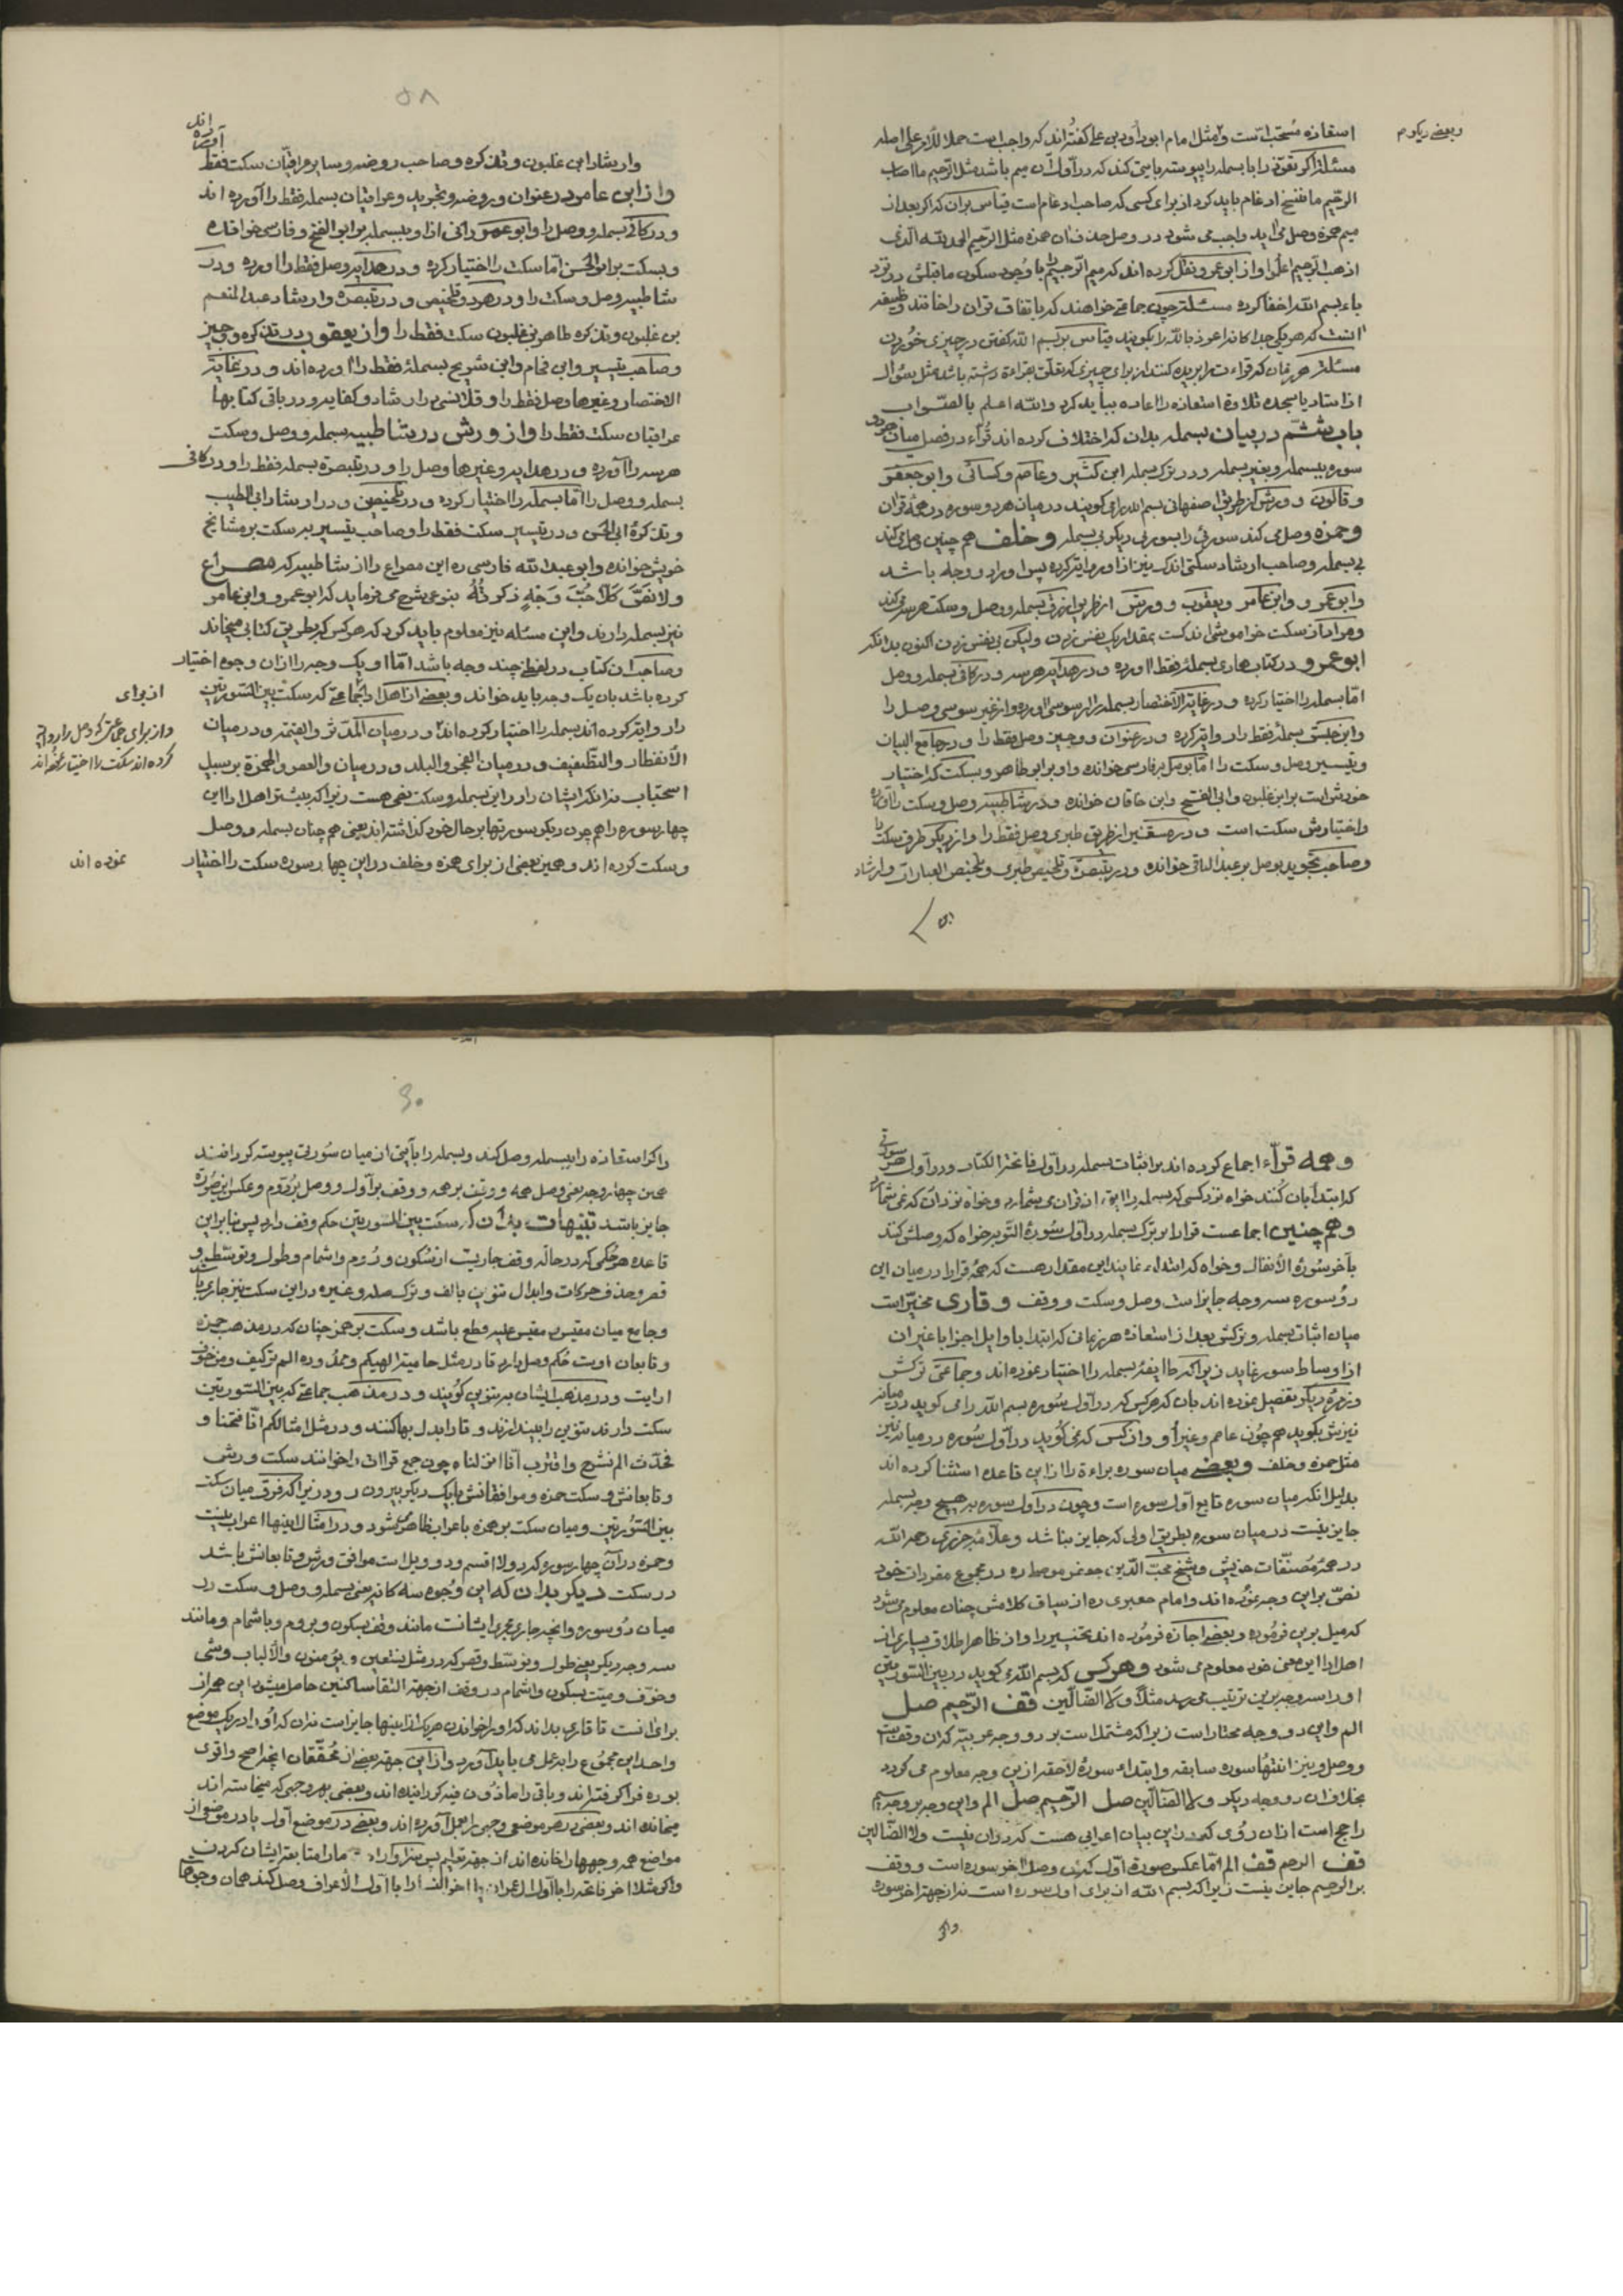 وبعضی دیگر هم
استعاذه مستحب است و مثل امام ابو داود بن علی گفته اند که واجب است حملا للامر علی اصله
مسئلة اگر تعوّذ را با بسمله پیوسته با میمی کند که در اول آن میم باشد مثل الرّجیم ما اصاب
الرّحیم ما ننسخ ادغام باید کرد از برای کسی که صاحب ادغام است قیاس بران که اگر بعد از
میم همزه وصل می آید واجب می شود در وصل حذف آن همزه مثل الرّجیم الحمد لله الذی
اذهب الرّجیم اعلوا و از ابو عمرو نقل کرده اند که میم الرّجیم را با وجود سکون ماقبلش در نزد
باء بسم الله اخفا کرده مسئلة چون جماعتی خواهند که باتفاق قران را خانند وظیفه
آنست که هر یکی جداگانه اعوذ بالله را بگویند قیاس بر بسم الله گفتن در چیزی خوردن
مسئلة هر زمان که قراءت را بریده کنند از برای چیزی که تعلّق بقراءة داشته باشد مثل سؤال
از استاد یا سجده تلاوة استعاذه را اعاده نباید کرد والله اعلم بالصّواب
باب ششم در بیان بسمله بدان که اختلاف کرده اند قُرّاء در فصل میان هر دو
سوره ببسمله و بغیر بسمله و در ترک بسمله ابن کثیر و عاصم و کسائی و ابو جعفر
و قالون و ورش از طریق اصفهانی بسم الله را می گویند در میان هر دو سوره در همهٔ قران
و حمزه وصل می کند سورتی را بسورتی دیگر بی بسمله و خلف هم چنین وصل می کند
بی بسمله و صاحب ارشاد سکتی اندک نیز از او روایت کرده پس او را دو وجه باشد
و ابو عمرو و ابن عامر و یعقوب و ورش از طریق ازرق بسمله و وصل و سکت هر سه می کنند
و مراد از سکت خواموشی اندکست بمقدار یک نفس زدن ولیکن بی نفس زدن اکنون بدانکه
ابو عمرو در کتاب هادی بسمله فقط آورده و در هدایه هر سه و در کافی بسمله و وصل
امّا بسمله را اختیار کرده و در غایة الاختصار بسمله را از سوسی آورده و از غیر سوسی وصل را
و ابن حبش بسمله فقط را روایة کرده و در عنوان و وجیز وصل فقط را و در جامع البیان
و تیسیر وصل و سکت را امّا بوصل بر فارسی خوانده و او بر ابو طاهر و بسکت که اختیار
خودش است بر ابن غلبون و ابی الفتح و ابن خاقان خوانده و در شاطبیه وصل و سکت را آورده
و اختیارش سکت است و در مستنیر از طریق طبری وصل فقط را و از دیگر طرق سکت را
و صاحب تجوید بوصل بر عبد الباقی خوانده و در تبصره و تلخیص طبری و تلخیص العبارات و ارشاد
۵۸
آورده اند
و ارشاد ابی غلبون و تذکره و صاحب روضه و سایر عراقیّان سکت فقط
و از ابن عامر در عنوان و روضه و تجرید و عراقیان بسمله فقط را آورده اند
و در کافی بسمله و وصل را و ابو عمرو دانی از او ببسمله بر ابو الفتح و فارسی خوانده
و بسکت بر ابو الحسن امّا سکت را اختیار کرده و در هدایه وصل فقط را آورده و در
شاطبیه وصل و سکت را و در هر دو تلخیص و در تبصره و ارشاد عبد المنعم
بن غلبون و تذکره طاهر بن غلبون سکت فقط را و از یعقوب در تذکره و وجیز
و صاحب تیسیر و ابی فحام و ابن شریح بسملهٔ فقط را آورده اند و در غایة
الاختصار و غیرها وصل فقط را و قلانسی در ارشاد و کفایه و در باقی کتابها
عراقیان سکت فقط را و از ورش در شاطبیه بسمله و وصل و سکت
هر سه را آورده و در هدایه و غیرها وصل را و در تبصره بسمله فقط را و در کافی
بسمله و وصل را امّا بسمله را اختیار کرده و در تلخیص و در ارشاد ابی الطیب
و تذکرهٔ ابی الحسن و در تیسیر سکت فقط را و صاحب تیسیر بسکت بر مشایخ
خویش خوانده و ابو عبد الله فارسی ره این مصراع را از شاطبیه که مصراع
ولا نصّ کَلّا حُبّ وَجهٍ ذکرتُهُ بنوعی شرح می فرماید که ابو عمرو و ابن عامر
نیز بسمله دارند و این مسئله نیز معلوم باید کرد که هر کس که بطریق کتابی میخواند
و صاحب آن کتاب در لفظی چند وجه باشد امّا او یک وجه را از ان وجوه اختیار
کرده باشد بان یک وجه باید خواند و بعضی از اهل ادا جماعتی که سکت بین السّورتین
از برای
را روایة کرده اند بسمله را اختیار کرده اند در میان المدّثّر و القیمة و در میان
و از برای جماعتی که وصل را روایة
کرده اند سکت را اختیار نموده اند
الانفطار و التّطفیف و در میان الفجر و البلد و در میان و العصر و الهمزة بر سبیل
استحباب نه آنکه ایشان را در این بسمله و سکت نصّی هست زیرا که بیشتر اهل ادا این
چهار سوره را هم چون دیگر سورتها بر حال خود گذاشته اند یعنی هم چنان بسمله و وصل
و سکت کرده اند و همین بعضی از برای حمزه و خلف در این چهار سوره سکت را اختیار
نموده اند
و همه قرّاء اجماع کرده اند بر اثبات بسمله در اول فاتحة الکتاب و در اول هر سورتی
که ابتدا بان کُنند خواه نزد کسی که بسمله را آیتی از قران می شمارد و خواه نزد آن که نمی شمارد
و هم چنین اجماعست قرا را بر ترک بسمله در اول سُورة التّوبه خواه که وصلش کنند
بآخر سُورة الأنفال و خواه که ابتداء نمایند این مقدار هست که همهٔ قرا را در میان این
دو سوره سه وجه جایز است وصل و سکت و وقف و قاری مخیّر است
میان اثبات بسمله و ترکش بعد از استعاذه هر زمانی که ابتدا باوایل اجزا یا غیر ان
از اوساط سور نماید زیرا که طایفهٔ بسمله را اختیار نموده اند و جماعتی ترکش
و زمرهٔ دیگر تفصیل نموده اند بان که هر کس که در اول سوره بسم الله را می گوید در میانه
نیزش بگوید هم چون عاصم و غیر او و ان کس که نمی گوید در اول سُوره در میانه نیز
مثل حمزه و خلف و بعضی میان سوره براءة را از این قاعده استثنا کرده اند
بدلیل انکه میان سوره تابع اول سوره است و چون در اول سوره به هیچ وجه بسمله
جایز نیست در میان سوره بطریق اولی که جایز نباشد و علّامه جزری رحمه الله
در همهٔ مُصنّفات خویش و شیخ محبّ الدّین جعفر موصلی ره در مجموع مفردات خود
نصّ بر این وجه نموده اند و امام جعبری ره از سیاق کلامش چنان معلوم می شود
که میل بر این فرموده و بعضی اجازه فرموده اند تخییر را و از ظاهر اطلاق بسیاری از
اهل ادا این معنی خود معلوم می شود و هر کس که بسم الله می گوید در بین السّورتین
او را سه وجه بر این ترتیب می رسد مثلا ولا الضّالّین قف الرّحیم صل
الم و این دو وجه مختار است زیرا که مشتمل است بر دو وجه عربیّه که ان وقف است
و وصل و نیز انتهاء سوره سابقه و ابتداء سورهٔ لاحقه از این وجه معلوم می گردد
بخلاف ان دو وجه دیگر ولا الضّالّین صل الرّحیم صل الم و این وجه بر وجه سیم
راجح است از ان روی که در این بیان اعرابی هست که در ان نیست ولا الضّالین
قف الرحیم قف الم امّا عکس صورة اول که ان وصل آخر سوره است و وقف
بر الرّحیم جایز نیست زیرا که بسم الله از برای اول سوره است نه از جهة اخر سوره
و اگر
۶۰
و اگر استعاذه را ببسمله وصل کند و بسمله را بآیتی از میان سُورتی پیوسته گردانند
همین چهار وجه یعنی وصل همه و وقف بر همه و وقف بر اول و وصل بر دوم و عکس این صورة
جایز باشد تنبیهات بدان که سکت بین السّورتین حکم وقف دارد پس بنا بر این
قاعده هر حُکمی که در حالة وقف جاریست از سُکون و رُوم و اشمام و طول و توسّط و
قصر و حذف حرکات و ابدال تنوین بالف و ترک صله و غیره در این سکت نیز جاری باشد
و جامع میان مقیس و مقیس علیه قطع باشد و سکت بر همز چنان که در مذهب حمزه
و تابعان اوست حُکم وصل دارد تا در مثل حامیة الهیکم و ممدّدة الم ترکیف و من خوف
ارایت و در مذهب ایشان به تنوین گویند و در مذهب جماعتی که بین السّورتین
سکت دارند تنوین را بیندازند و تا را بدل بها کنند و در مثل امثالکم انّا فتحنا و
فحدّث الم نشرح و اقترب انّا انزلناه چون جمع قراات را خوانند سکت ورش
و تابعانش و سکت حمزه و موافقانش با یک دیگر بیرون رود زیرا که فرق میان سکت
بین السّورتین و میان سکت بر همزه باعراب ظاهر می شود و در امثال اینها اعراب نیست
و حمزه در آن چهار سوره که در و لا اقسم و دو ویل است موافق ورش و تابعانش باشد
در سکت دیگر بدان که این وجوه سه گانه یعنی بسمله و وصل و سکت در
میان دو سوره و آنچه جاری مجری ایشانست مانند وقف بسکون و بروم و باشمام و مانند
سه وجه دیگر یعنی طول و توسّط و قصر که در مثل نستعین و یؤمنون و الألباب و شی
و خوف و میّت بسکون و اشمام در وقف از جهة التقاء ساکنین حاصل میشود این همه از
برای آنست تا قاری بداند که او را خواندن هر یک از اینها جایز است نه ان که او را در یک موضع
واحد این مجموع را بعمل می باید آورد و از این جهة بعضی از مُحقّقان آنچه اصح و اقوی
بوده فرا گرفته اند و باقی را ماذون فیه گردانیده اند و بعضی بهر وجهی که میخاسته اند
میخانده اند و بعضی در هر موضعی وجهی را بعمل آورده اند و بعضی در موضع اول یا در موضعی از
مواضع همه وجهها را خانده اند از جهة تعلیم پس سزاوار ما را متابعة ایشان کردن
و اگر مثلا اخر فاتحه را با اول ال عمران یا اخر الف را با اول الأعراف وصل کند همان وجوهها